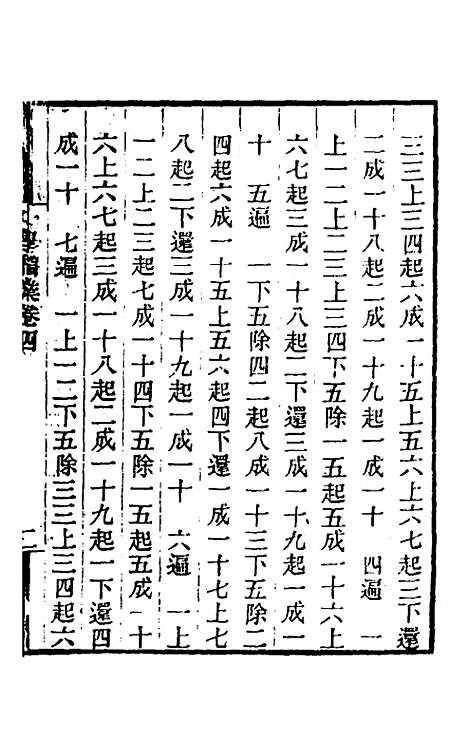 三三上三四起六成一十五上五六上六七起三下還
二成一十八起二成一十九起一成一十　四遍　一
上一二上二三上三四下五除一五起五成一十六上
六七起三成一十八起二下還三成一十九起一成一
十　五遍　一下五除四二起八成一十三下五除二
四起六成一十五上五六起四下還一成一十七上七
八起二下還三成一十九起一成一十　六遍　一上
一二上二三起七成一十四下五除一五起五成一十
六上六七起三成一十八起二成一十九起一下還四
成一十　七遍　一上一二下五除三三上三四起六
學稽業卷四